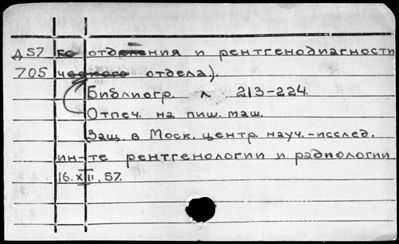 Д57 ко отделения и рентгенодиагности
705 ческого отдела).
Библиогр. л 213-224.
Отпеч. на пиш. маш.
Защ. в Моск. центр. науч.-исслед.
ин-те рентгенологии и радиологии
16.XII.57.